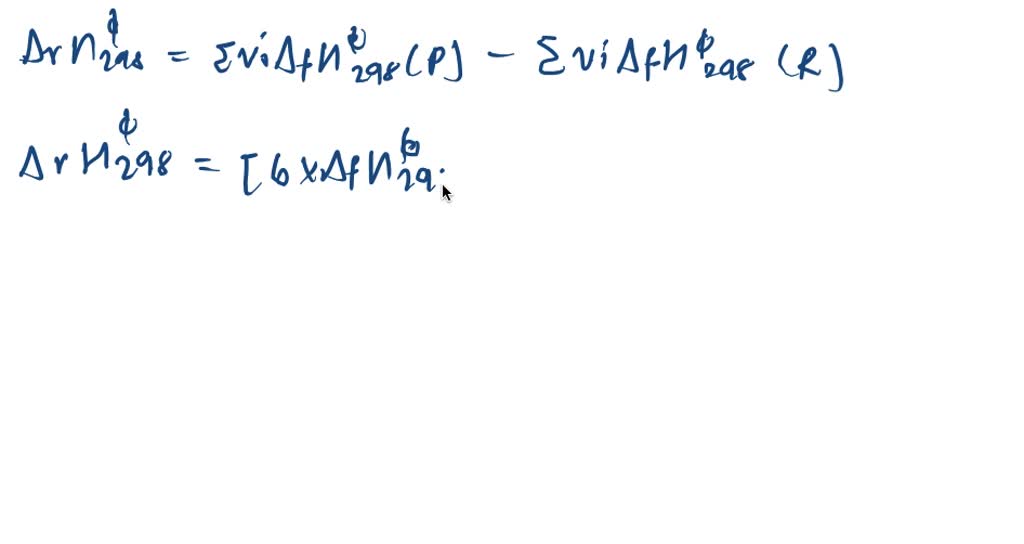 ΔrH°298 = Σνi ΔfH°298 (P) - Σνi ΔfH°298 (R)
ΔrH°298 = [6 × ΔfH°29